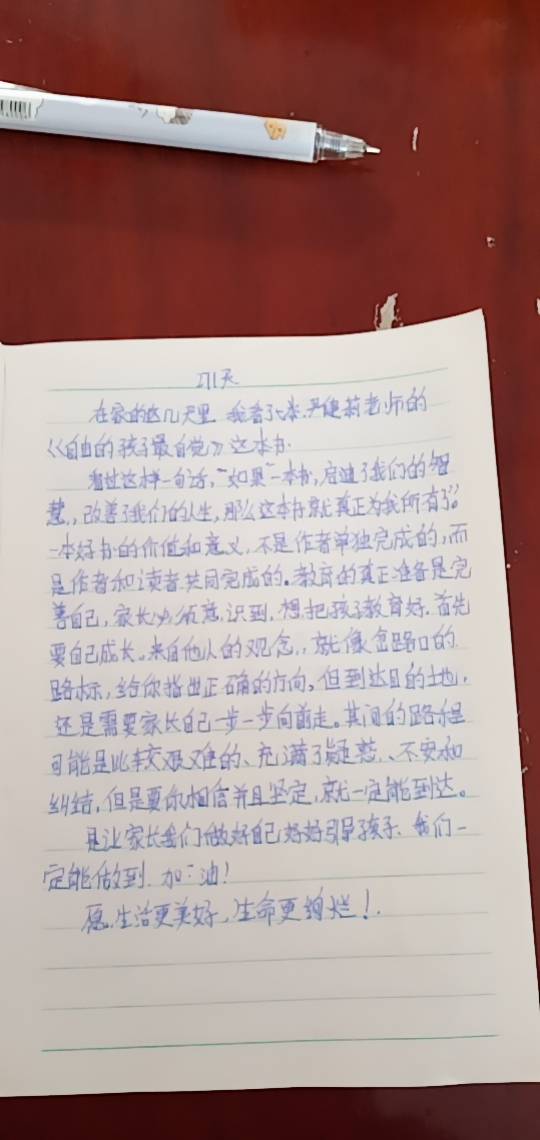 271天
在家的这几天里 我看了一本 尹建莉老师的
《自由的孩子最自觉》这本书.
看过这样一句话,“如果一本书,启迪了我们的智
慧,改善了我们的人生,那么这本书就真正为我所有了。”
一本好书的价值和意义,不是作者单独完成的,而
是作者和读者共同完成的。教育的真正准备是完
善自己,家长必须意识到,想把孩子教育好.首先
要自己成长。来自他人的观念,就像岔路口的
路标,给你指出正确的方向,但到达目的土地,
还是需要家长自己一步一步向前走。其间的路程
可能是比较艰难的、充满了疑惑、不安和
纠结,但是要你相信并且坚定,就一定能到达。
是让家长我们做好自己好好引导孩子.我们一
定能做到.加油!
愿.生活更美好,生命更绚烂!